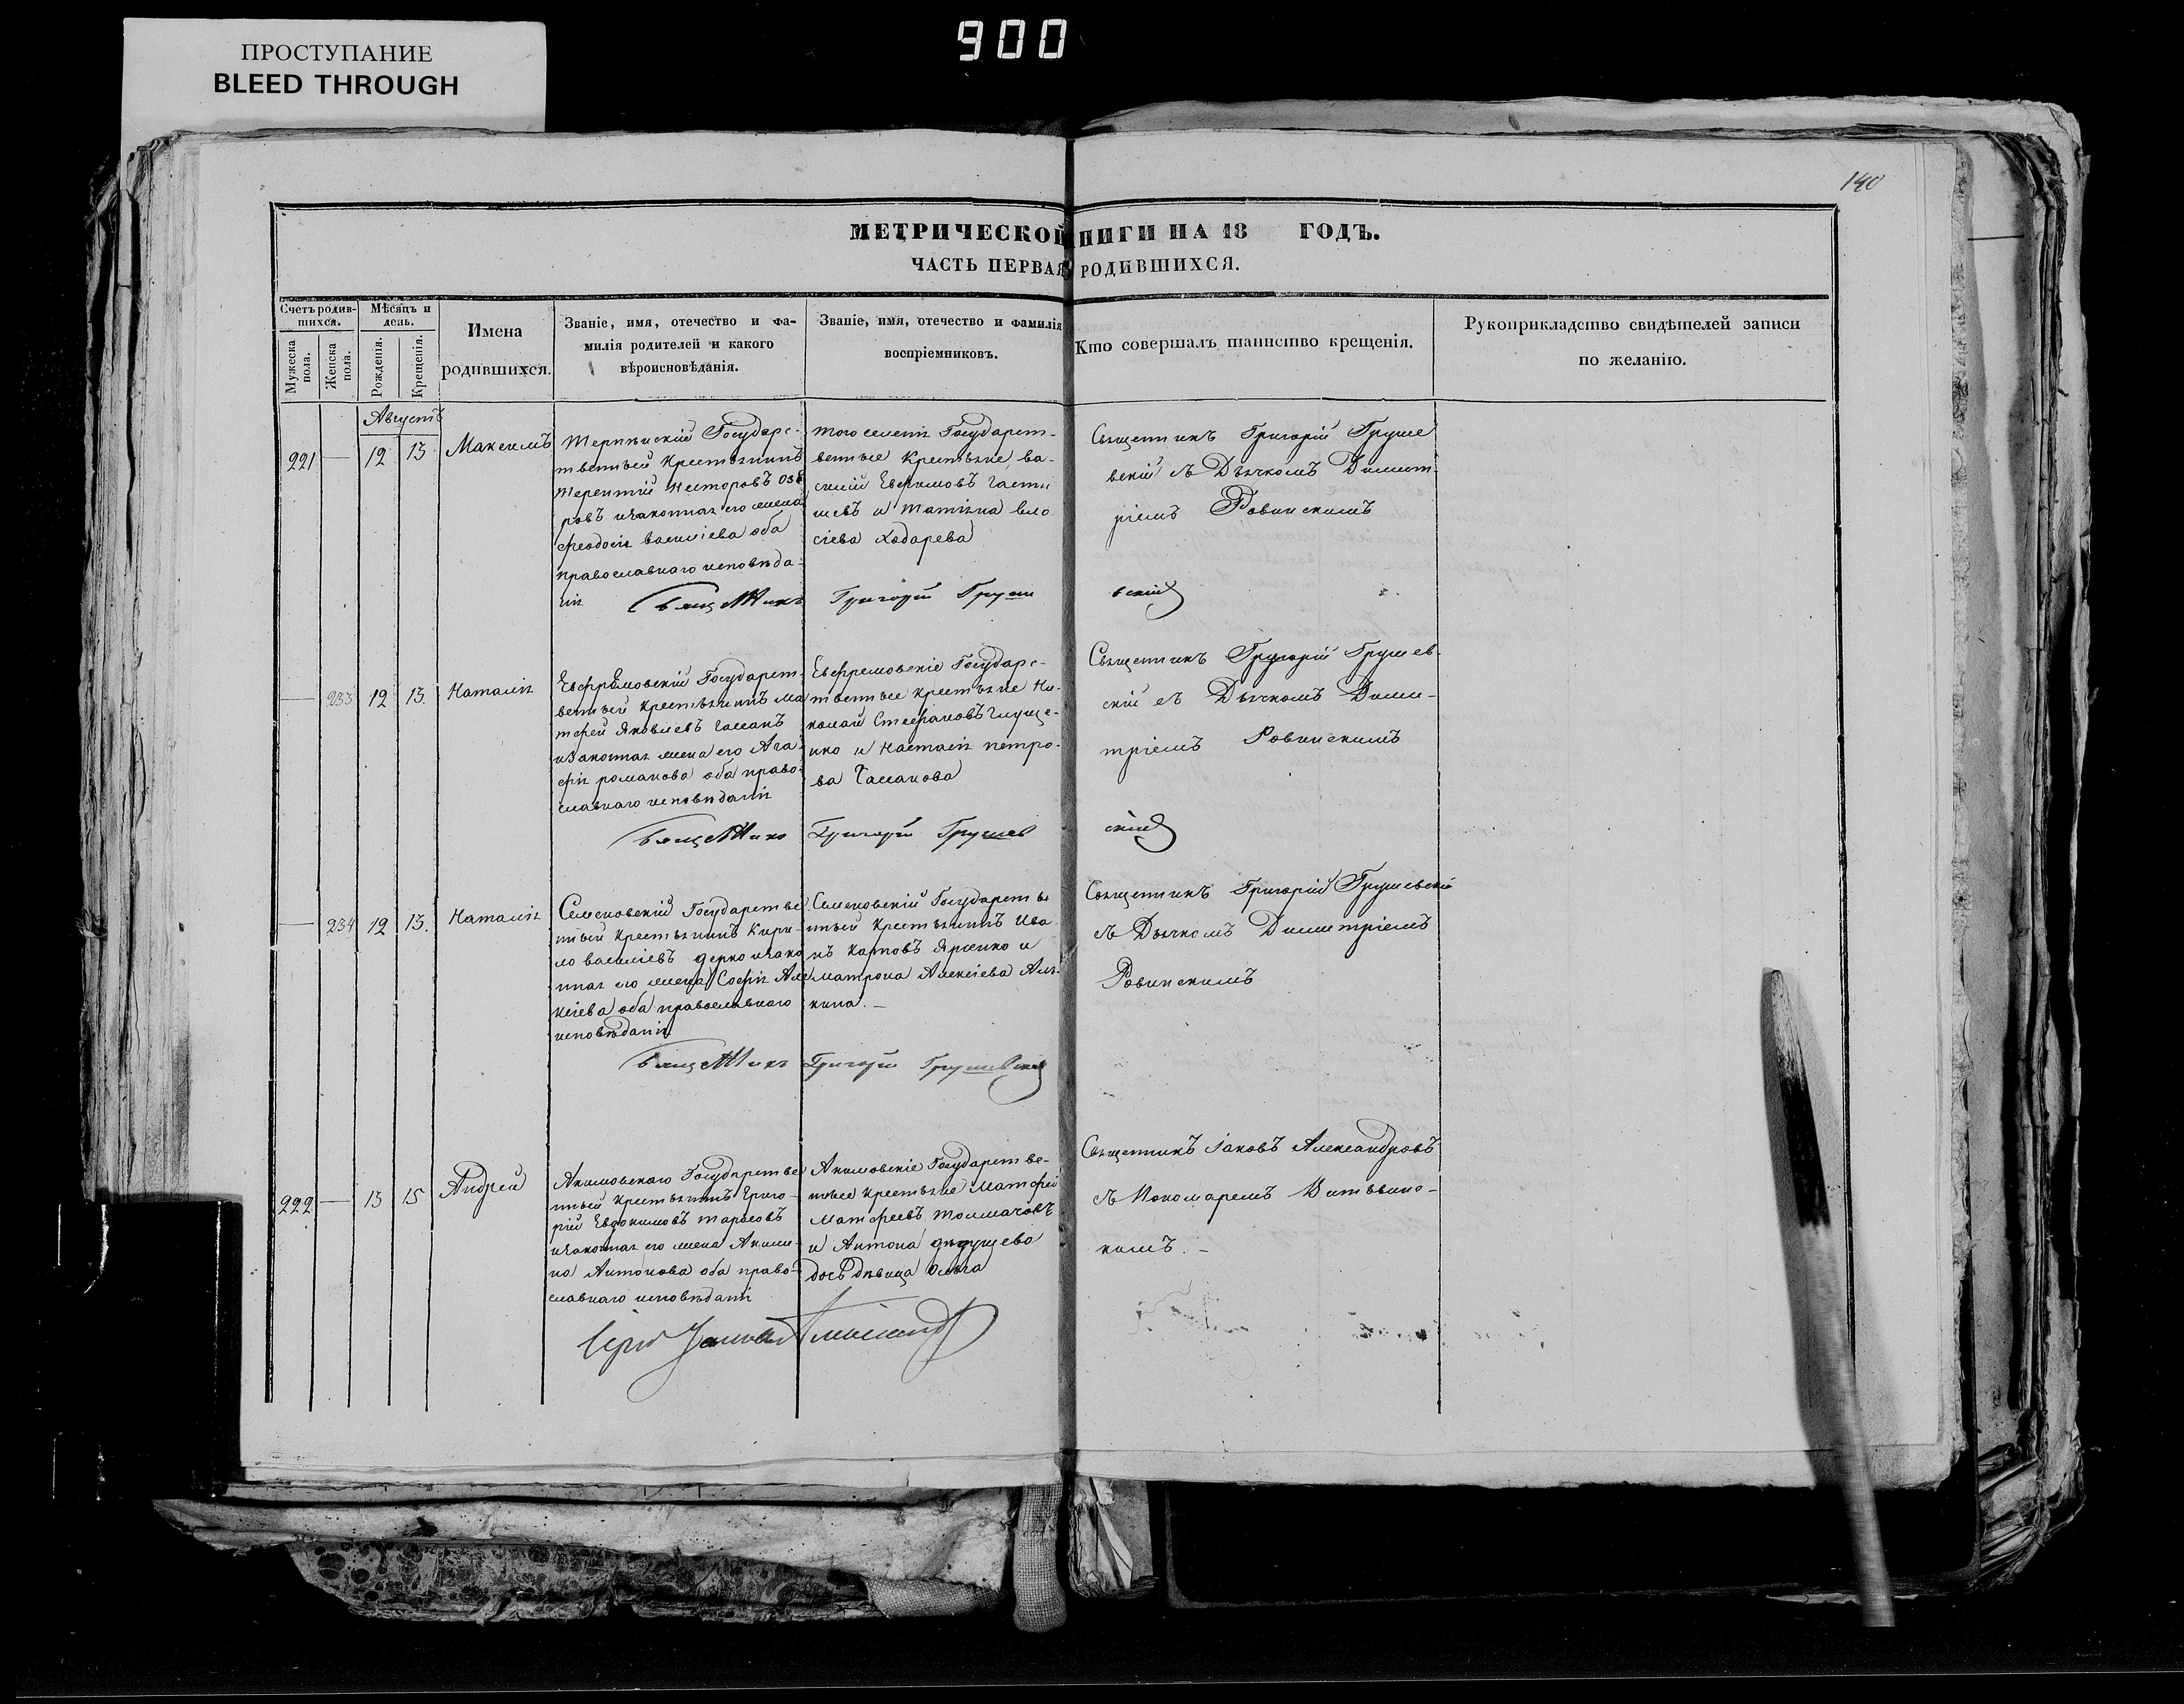 ПРОСТУПАНИЕ
BLEED THROUGH
900
140
МЕТРИЧЕСКОЙ НИГИ НА 18 ГОДЪ.
ЧАСТЬ ПЕРВАЯ РОДИВШИХСЯ.
Счетъ родив-
шихся.
Мужеска
пола.
Женска
пола.
Мѣсяцъ и
день.
Рожденія.
Крещенія.
Имена
родившихся.
Званіе, имя, отечество и фа-
милія родителей и какого
вѣроисновѣданія.
Званіе, имя, отечество и фамилія
воспріемниковъ.
Кто совершалъ таинство крещенія.
Рукоприкладство свидѣтелей записи
по желанію.
Августъ
221 — 12 13 Максимъ
Терпѣнскій Государс-
твенный Крестьянинъ
Терентій Несторовъ
ровъ и законная его жена
Феодосія Василіева оба
православнаго исповѣда-
нія
того селенія Государст-
венные Крестьяне Ва-
силій Евфимовъ
и Татіяна Вла
сіева Ходарева
Священникъ Григорій Груше
вскій съ Дьячкомъ Димит-
ріемъ Ровинскимъ
Священникъ Григорій Груше
вскій
— 233 12 13. Наталія
Евфремовскій Государст-
венный Крестьянинъ Ма
тфей Яковлевъ
и законная жена его Ага-
фія Романова оба право-
славнаго исповѣданія
Евфремовскіе Государс-
твенные Крестьяне Ни-
колай Стефановъ Глуще-
нко и Настасія Петро-
ва
Священникъ Григорій Грушев-
скій съ Дьячкомъ Дими-
тріемъ Ровинскимъ
Священникъ Григорій Грушев
скій
— 234 12 13. Наталія
Семеновскій Государстве
нный Крестьянинъ Кири-
ло Василіевъ Дерко и зако
нная его жена Софія Але
ксіева оба православнаго
исповѣданія
Семеновскій Государстве
нный Крестьянинъ Ива
нъ Карповъ и
Матрона Алексіева
кина. —
Священникъ Григорій Грушевскій
съ Дьячкомъ Димитріемъ
Ровинскимъ
Священникъ Григорій Грушевскій
222 — 13 15 Андрей
Акимовскаго Государстве
нный Крестьянинъ Григо-
рій Евдокимовъ Тарасовъ
и законная его жена Акили-
на Антонова оба право-
славнаго исповѣданія
Акимовскіе Государстве-
нные Крестьяне Матфей
Матфеевъ Толмачовъ
и Антона
дочь дѣвица Ольга
Священникъ Іаковъ Александровъ
съ Пономаремъ
кимъ. —
Іерей Іаковъ Александр